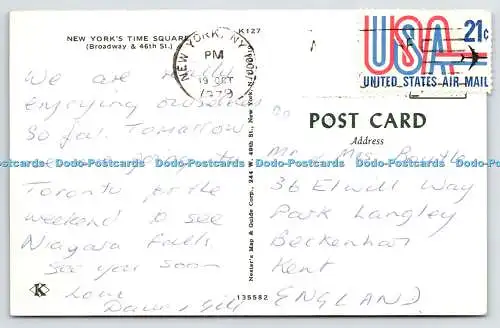 NEW YORK'S TIME SQUARE
(Broadway & 46th St.)
K127
We are really
enjoying ourselves
so far. Tomorrow
Toronto for the
weekend to see
Niagara Falls.
See you soon
Love
Dave & Gill
K
Nester's Map & Guide Corp., 244 W. 49th St., New York
135582
NEW YORK, NY
PM
19 OCT
1979
USA 21c
UNITED STATES AIR MAIL
POST CARD
Address
Mr & Mrs
36 Elwill Way
Park Langley
Beckenham
Kent
ENGLAND.
Dodo-Postcards Dodo-Postcards Dodo-Postcards Dodo-Postcards Dodo-Postcards Dodo-Postcards